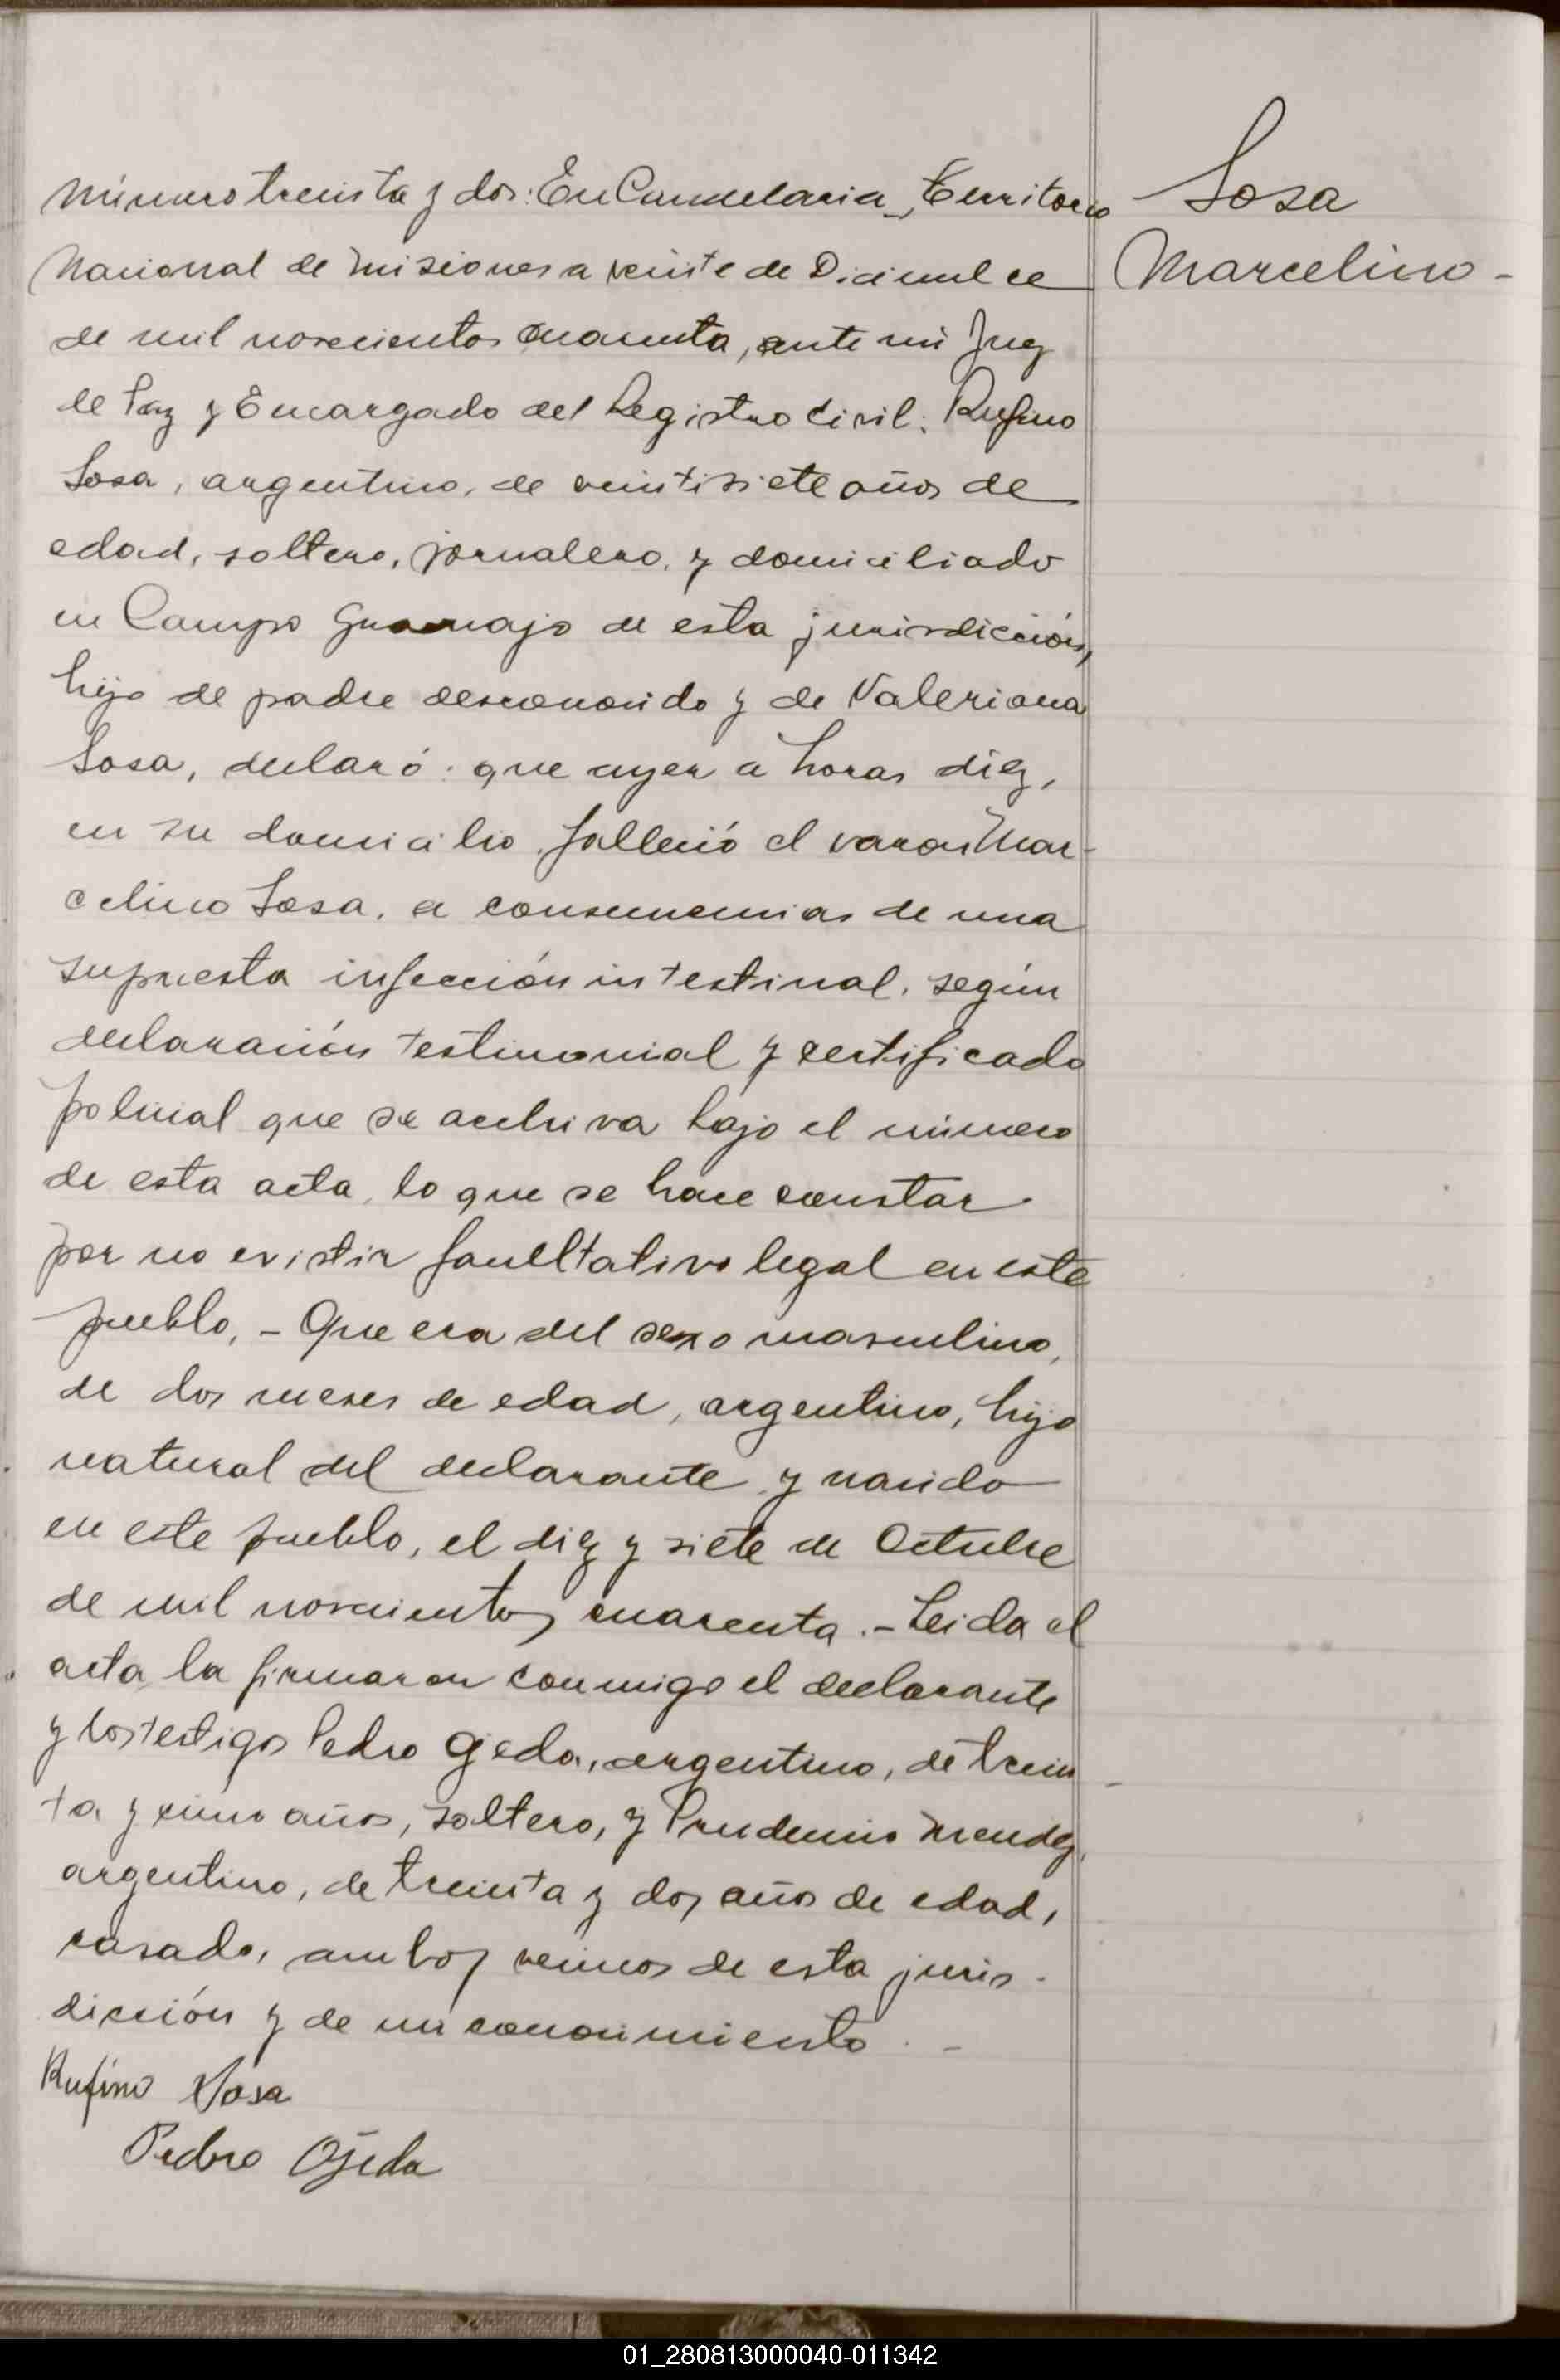 Número treinta y dos: En Candelaria, Territorio
Nacional de Misiones a veinte de Diciembre
de mil novecientos cuarenta, ante mi Juez
de Paz y Encargado del Registro Civil: Rufino
Sosa, argentino, de veintisiete años de
edad, soltero, jornalero, y domiciliado
en Campo de esta jurisdicción,
hijo de padre desconocido y de Valeriana
Sosa, declaró: que ayer a horas diez,
en su domicilio, falleció el varon Mar-
celino Sosa, a consecuencias de una
supuesta infección intestinal, según
declaración testimonial y certificado
policial que se archiva bajo el número
de esta acta, lo que se hace constar
por no existir facultativo legal en este
pueblo, - Que era del sexo masculino,
de dos meses de edad, argentino, hijo
natural del declarante y nacido
en este pueblo, el diez y siete de Octubre
de mil novecientos cuarenta.- Leida el
acta la firmaron conmigo el declarante
y los testigos Pedro Ojeda, argentino, de trein
ta y cinco años, soltero, y Prudencio Mendez,
argentino, de treinta y dos años de edad,
casado, ambos vecinos de esta juris-
dicción y de mi conocimiento. -
Rufino Sosa
Pedro Ojeda
Sosa
Marcelino -
01_280813000040-011342